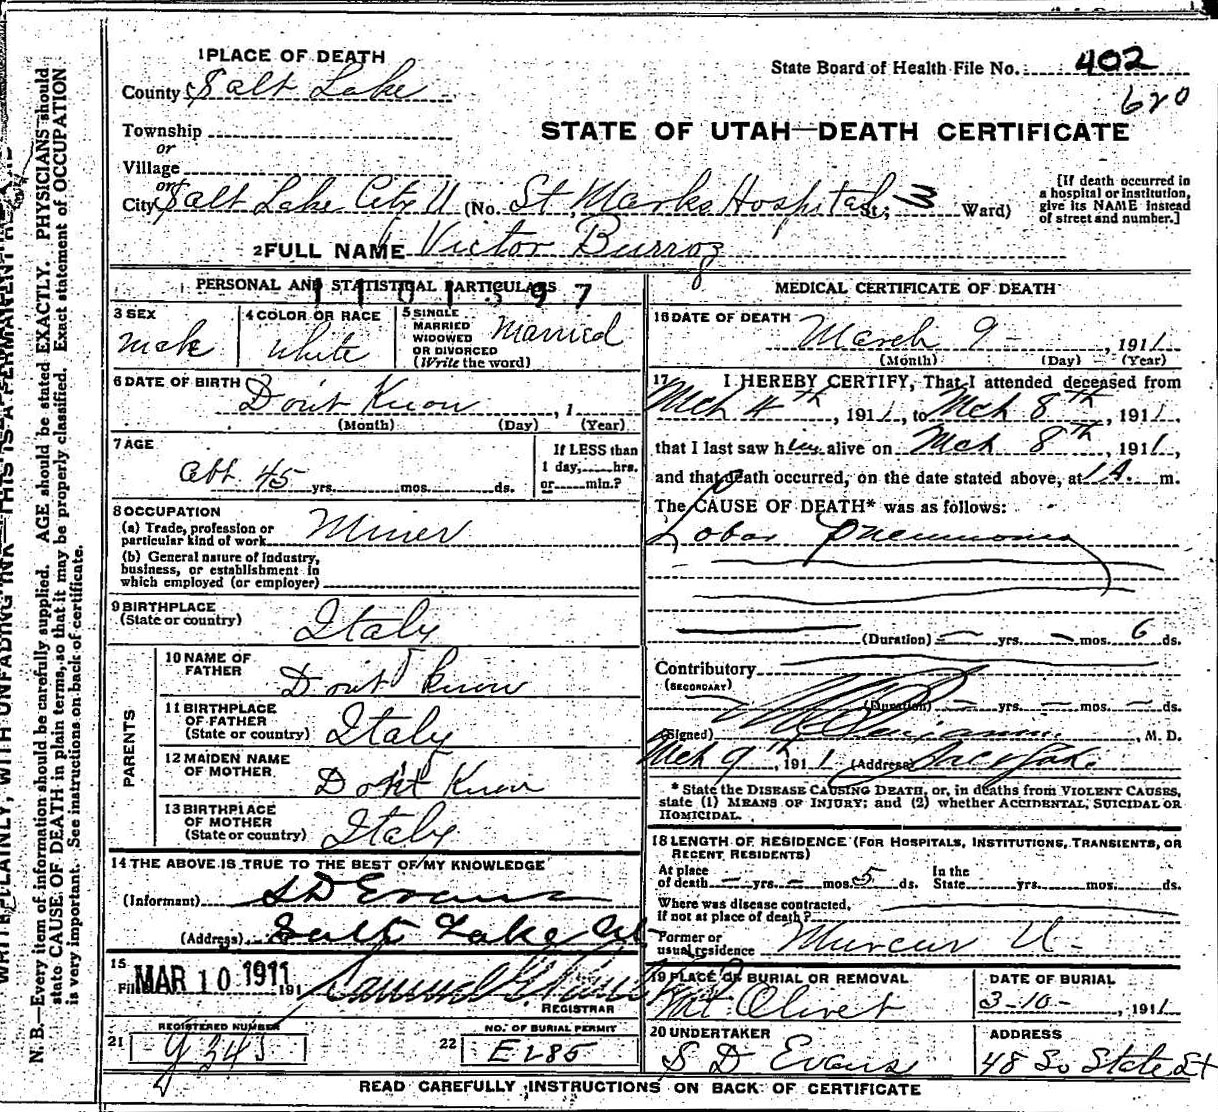 1 PLACE OF DEATH
County Salt Lake
State Board of Health File No. 402
620
Township
or
Village
or
City Salt Lake City U (No. St Marks Hospital St; 3 Ward)
STATE OF UTAH—DEATH CERTIFICATE
[If death occurred in
a hospital or institution,
give its NAME instead
of street and number.]
2 FULL NAME Victor Burroz
PERSONAL AND STATISTICAL PARTICULARS
1101397
3 SEX
male
4 COLOR OR RACE
White
5 SINGLE
MARRIED
WIDOWED
OR DIVORCED
(Write the word)
Married
6 DATE OF BIRTH Don't Know, 1
(Month) (Day) (Year)
7 AGE
abt 45 yrs. mos. ds.
If LESS than
1 day, hrs.
or min.?
8 OCCUPATION
(a) Trade, profession or
particular kind of work Miner
(b) General nature of Industry,
business, or establishment in
which employed (or employer)
9 BIRTHPLACE
(State or country) Italy
PARENTS
10 NAME OF
FATHER Don't Know
11 BIRTHPLACE
OF FATHER
(State or country) Italy
12 MAIDEN NAME
OF MOTHER Don't Know
13 BIRTHPLACE
OF MOTHER
(State or country) Italy
14 THE ABOVE IS TRUE TO THE BEST OF MY KNOWLEDGE
(Informant) S D Evans
(Address) Salt Lake Ut
15
Filed MAR 10 1911 191 Samuel G.
REGISTRAR
21 REGISTERED NUMBER
22 NO. OF BURIAL PERMIT
E 285
MEDICAL CERTIFICATE OF DEATH
16 DATE OF DEATH
March 9 - , 1911
(Month) (Day) (Year)
17 I HEREBY CERTIFY, That I attended deceased from
Mch 4th, 1911, to Mch 8th, 1911,
that I last saw him alive on Mch 8th, 1911,
and that death occurred, on the date stated above, at 1 A. m.
The CAUSE OF DEATH* was as follows:
Lobar Pneumonia
(Duration) — yrs. — mos. 6 ds.
Contributory
(SECONDARY)
(Duration) — yrs. — mos. — ds.
(Signed) , M. D.
Mch 9th, 1911 (Address) Salt Lake
* State the DISEASE CAUSING DEATH, or, in deaths from VIOLENT CAUSES,
state (1) MEANS OF INJURY; and (2) whether ACCIDENTAL, SUICIDAL OR
HOMICIDAL.
18 LENGTH OF RESIDENCE (FOR HOSPITALS, INSTITUTIONS, TRANSIENTS, OR
RECENT RESIDENTS)
At place
of death — yrs. — mos. 5 ds. In the
State yrs. mos. ds.
Where was disease contracted,
if not at place of death?
Former or
usual residence Mercur U-
19 PLACE OF BURIAL OR REMOVAL
Mt Olivet
DATE OF BURIAL
3-10-, 1911
20 UNDERTAKER
S D Evans
ADDRESS
48 So State St
READ CAREFULLY INSTRUCTIONS ON BACK OF CERTIFICATE
WRITE PLAINLY, WITH UNFADING INK—THIS IS A PERMANENT RECORD
N. B.—Every item of information should be carefully supplied. AGE should be stated EXACTLY. PHYSICIANS should
state CAUSE OF DEATH in plain terms, so that it may be properly classified. Exact statement of OCCUPATION
is very important. See instructions on back of certificate.